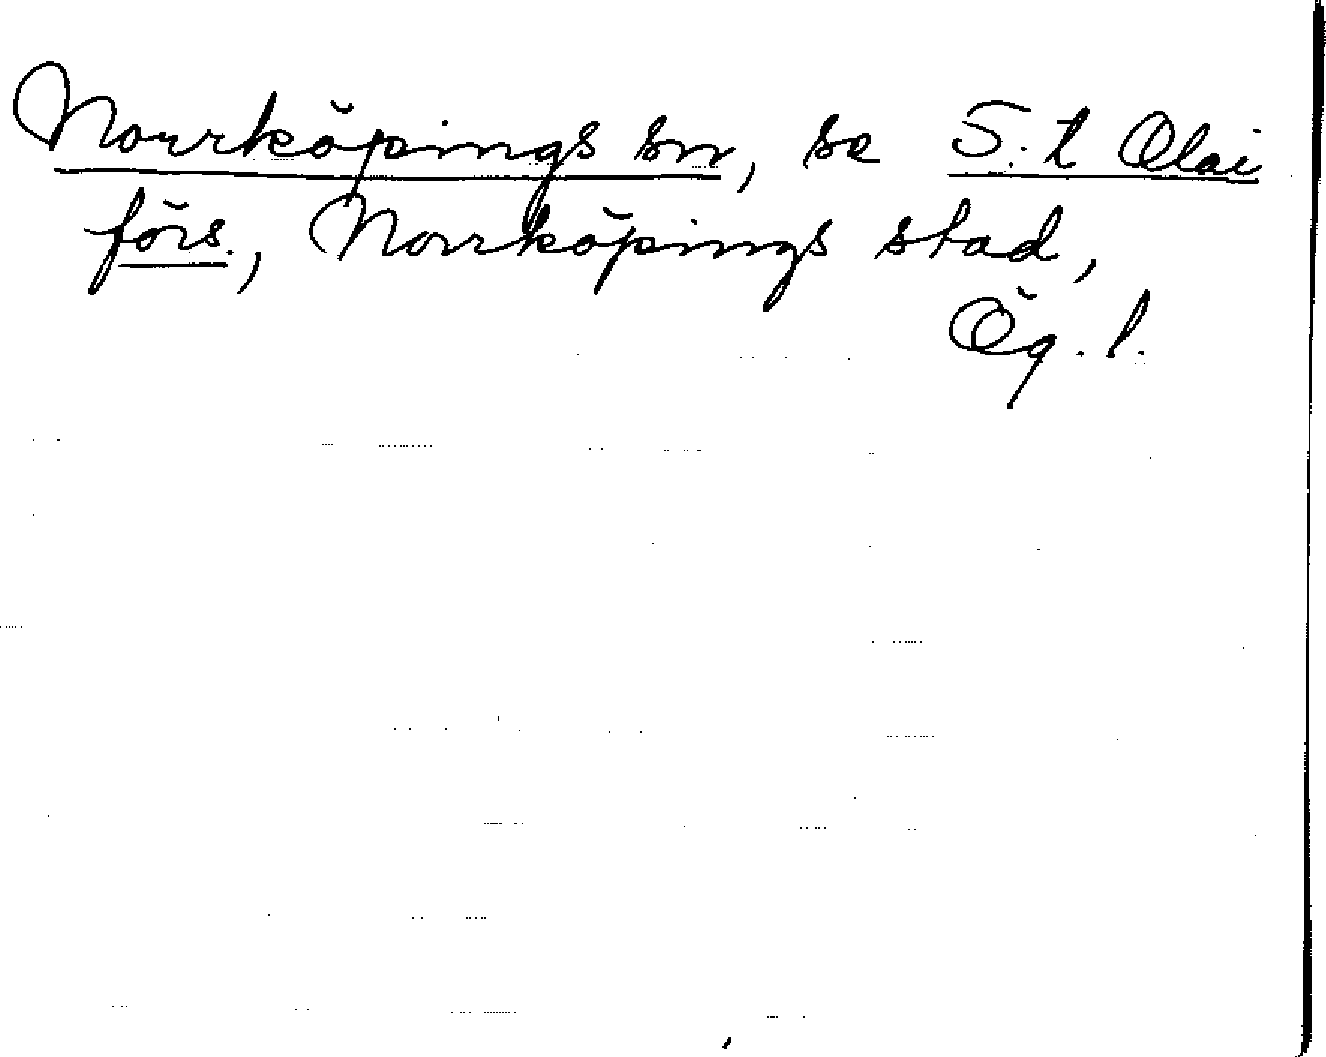 Norrköpings sn, se S:t Olai
förs., Norrköpings stad,
Ög. l.